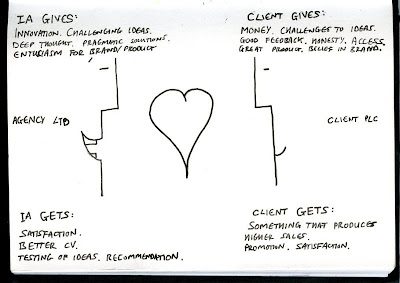 IA GIVES:
INNOVATION. CHALLENGING IDEAS.
DEEP THOUGHT. PRAGMATIC SOLUTIONS.
ENTHUSIASM FOR BRAND/PRODUCT
CLIENT GIVES:
MONEY. CHALLENGES TO IDEAS.
GOOD FEEDBACK. HONESTY. ACCESS.
GREAT PRODUCT. BELIEF IN BRAND.
AGENCY LTD
CLIENT PLC
IA GETS:
SATISFACTION.
BETTER CV.
TESTING OF IDEAS. RECOMMENDATION.
CLIENT GETS:
SOMETHING THAT PRODUCES
HIGHER SALES.
PROMOTION. SATISFACTION.